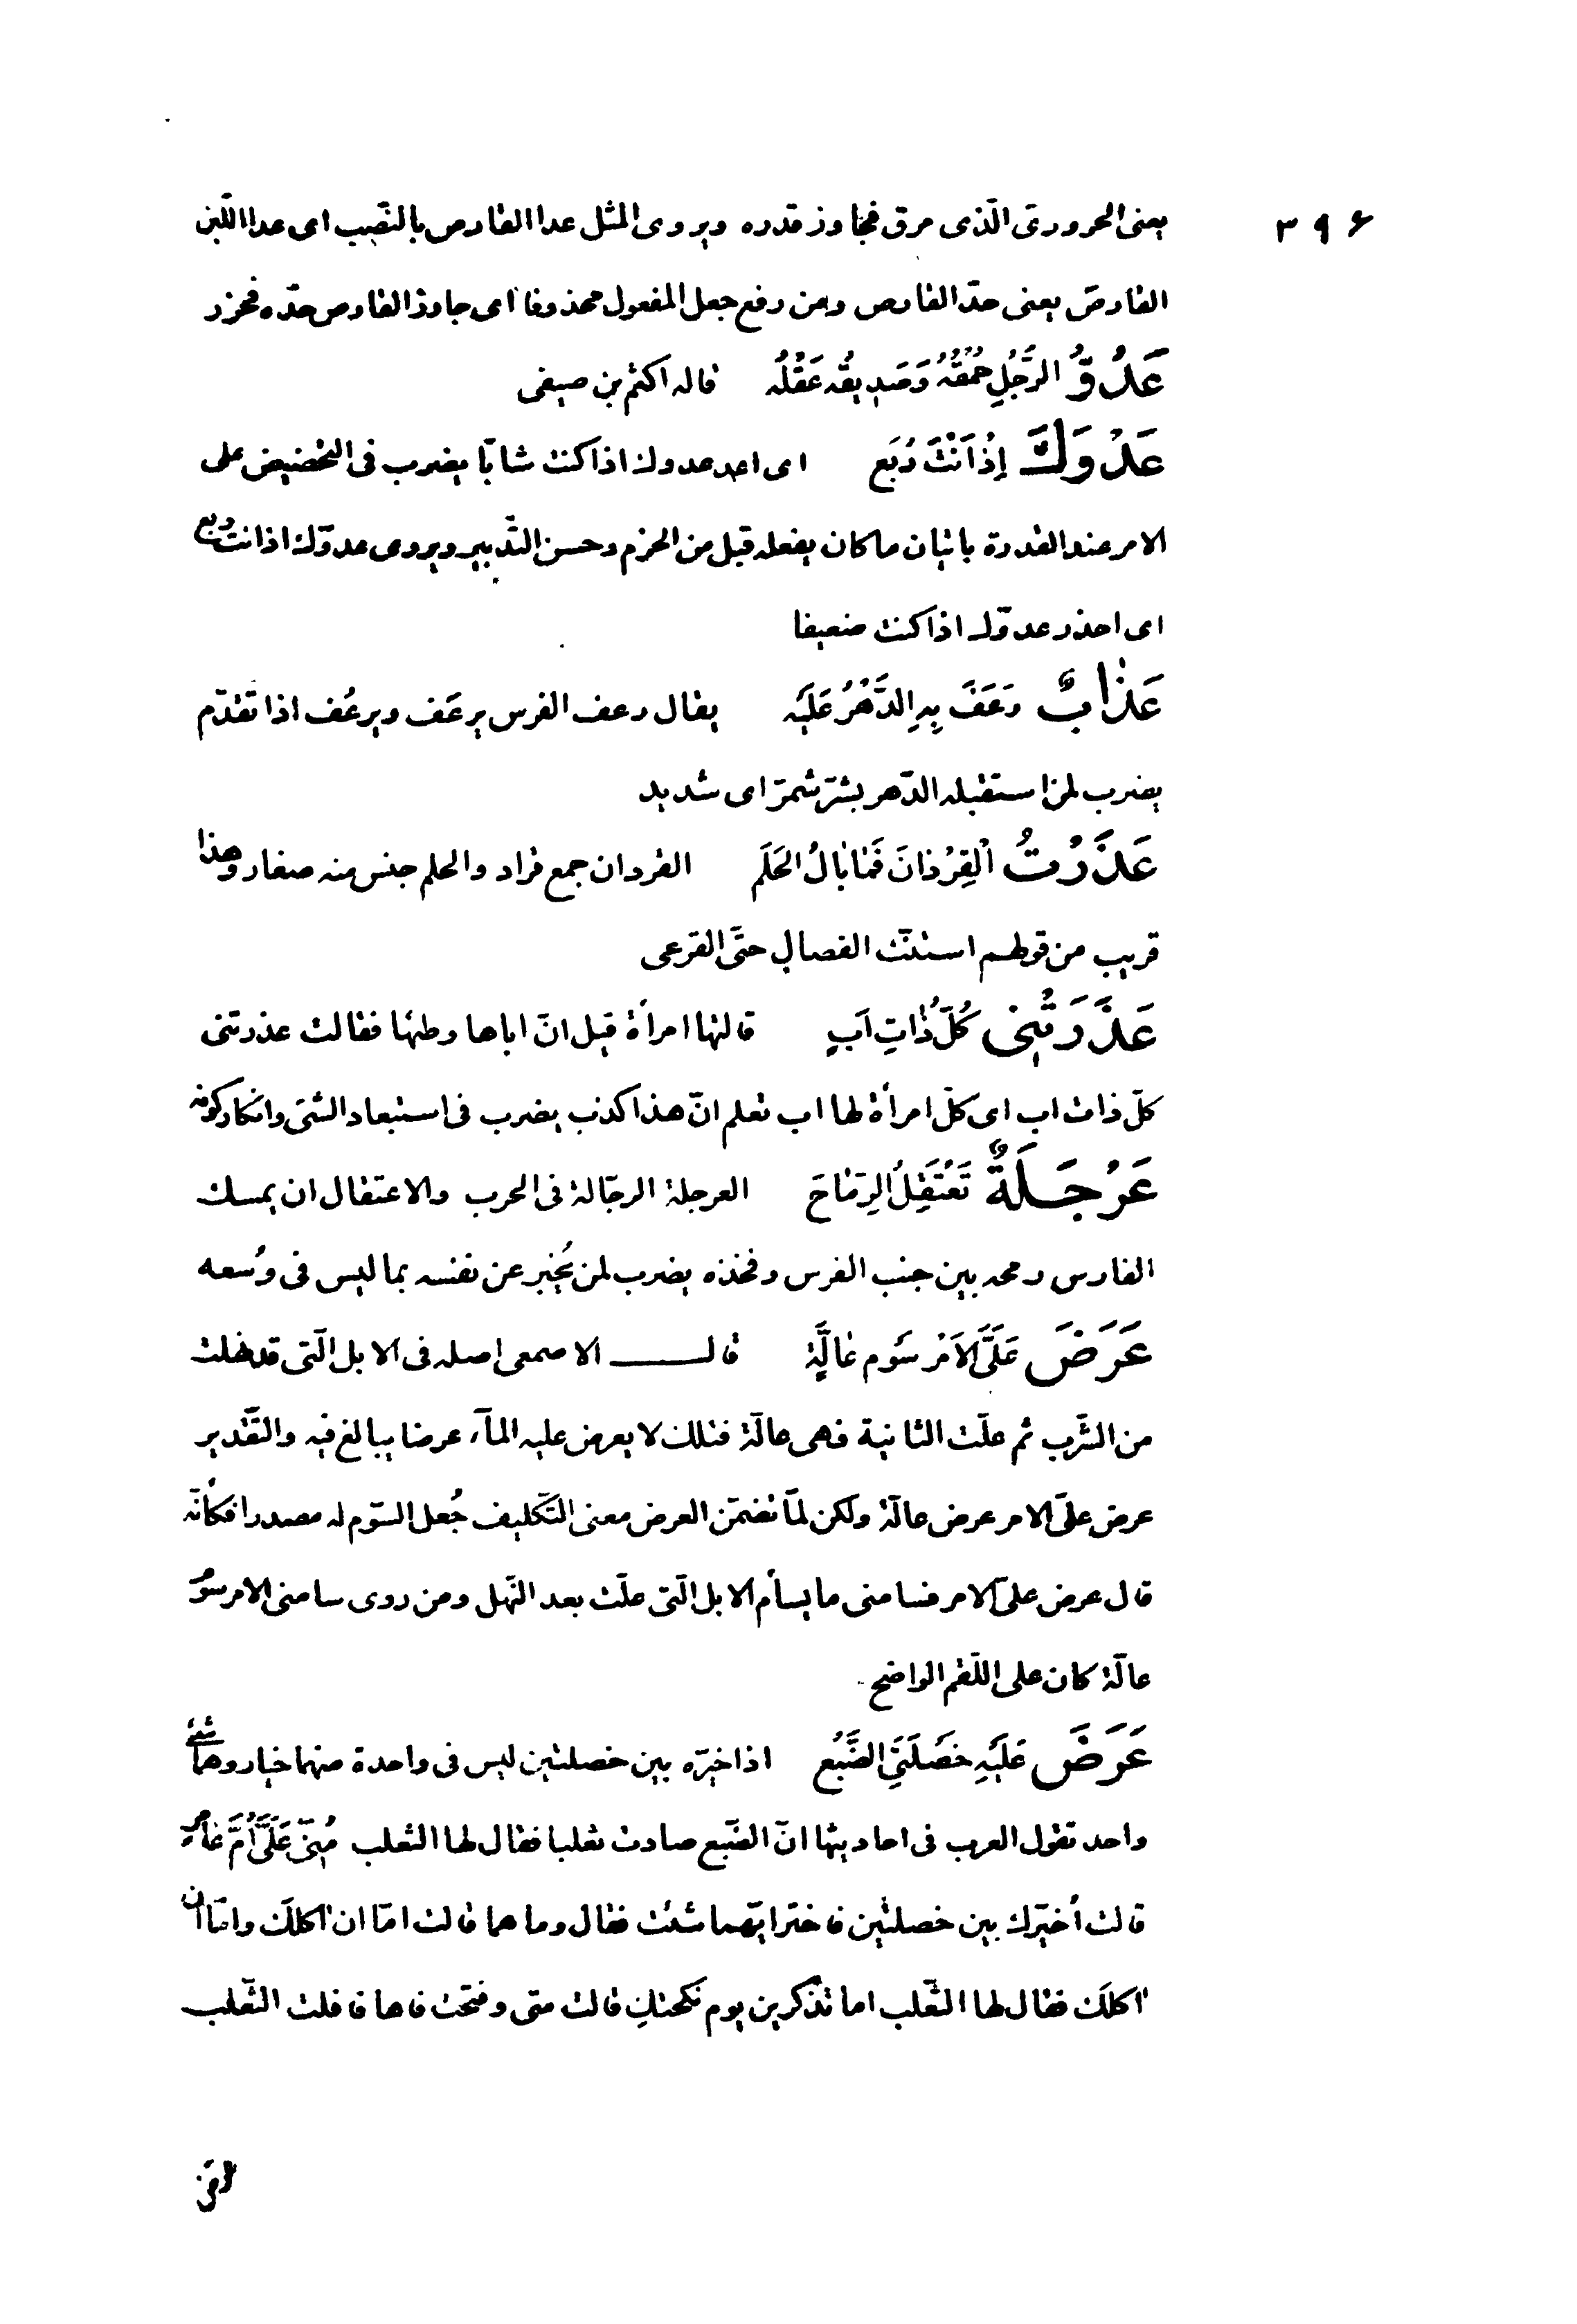 ٣٩۶
يعنى الحرورىّ الّذى مرق فجاوز قدره ويروى المثل عدا القارص بالنّصب اى عدا اللّبن
القارصَ يعنى حدّ القارص ومن رفع جعل المفعول محذوفا اى جاوز القارص حدّه فحزر
عَدُوُّ الرَّجُلِ حُمْقُهُ وَصَديقُه عَقْلُه قاله اكثم بن صيفى
عَدُوَّكَ إِذْ اَنْتَ رُبَع اى اعد عدوك اذا كنت شابّا يضرب فى التحضيض على
الامر عند القدرة باتيان ما كان يفعله قبل من الحزم وحسن التّدبير ويروى عدوّك اذ انت ربع
اى احذر عدوّك اذا كنت ضعيفا
عَذٰابٌ رَعَفَ بِهِ الدَّهْرُ عَلَيْه يقال رعف الفرس يرعَف ويرعُف اذا تقدّم
يضرب لمن استقبله الدّهر بشرّ شمرّ اى شديد
عَذَرْتُ الْقِرْدٰانَ فَمٰا بٰالُ الحَلَم القردان جمع قراد والحلم جنس منه صغار وهذا
قريب من قولهم استنّت الفصال حتّى القرعى
عَذَرَتْنِى كُلُّ ذٰاتِ اَبٍ قالتها امرأة قيل انّ اباها وطئها فقالت عذرتنى
كلّ ذات اب اى كلّ امرأة لها اب تعلم انّ هذا كذب يضرب فى استبعاد الشئ وانكار كونه
عَرْجَلَةٌ تَعْتَقِلُ الرِمٰاحَ العرجلة الرجّالة فى الحرب والاعتقال ان يمسك
الفارس رمحه بين جنب الفرس وفخذه يضرب لمن يُخبر عن نفسه بما ليس فى وُسعه
عَرَضَ عَلَىَّ الاَمْرَ سَوْمَ عٰالَّةٍ قال الاصمعى اصله فى الابل الّتى قد نهلت
من الشّرب ثم علّت الثانية فهى عالّة فتلك لا يعرض عليه المآء عرضا يبالغ فيه والتّقدير
عرض علىّ الامر عرض عالّة ولكن لمّا تضمّن العرض معنى التّكليف جُعل السّوم له مصدرا فكأنّه
قال عرض علىّ الامر فسامنى ما يسأم الابل الّتى علّت بعد النّهل ومن روى سامنى الامر سوم
عالّة كان على اللّقم الواضح
عَرَضَ عَلَيْهِ خَصْلَتَىِ الضَّبُع اذا خيّره بين خصلتين ليس فى واحدة منهما خيار وهما شئ
واحد تقول العرب فى احاديثها انّ الضّبع صادت ثعلبا فقال لها الثعلب مُنّى عَلَىَّ اُمَّ عٰامر
قالت أخيّرك بين خصلتين فاختر ايّهما شئت فقال وما هما قالت امّا ان اكلك وامّا ان
اكلك فقال لها الثّعلب اما تذكرين يوم نكحتك قالت متى وفتحت فاها فافلت الثّعلب